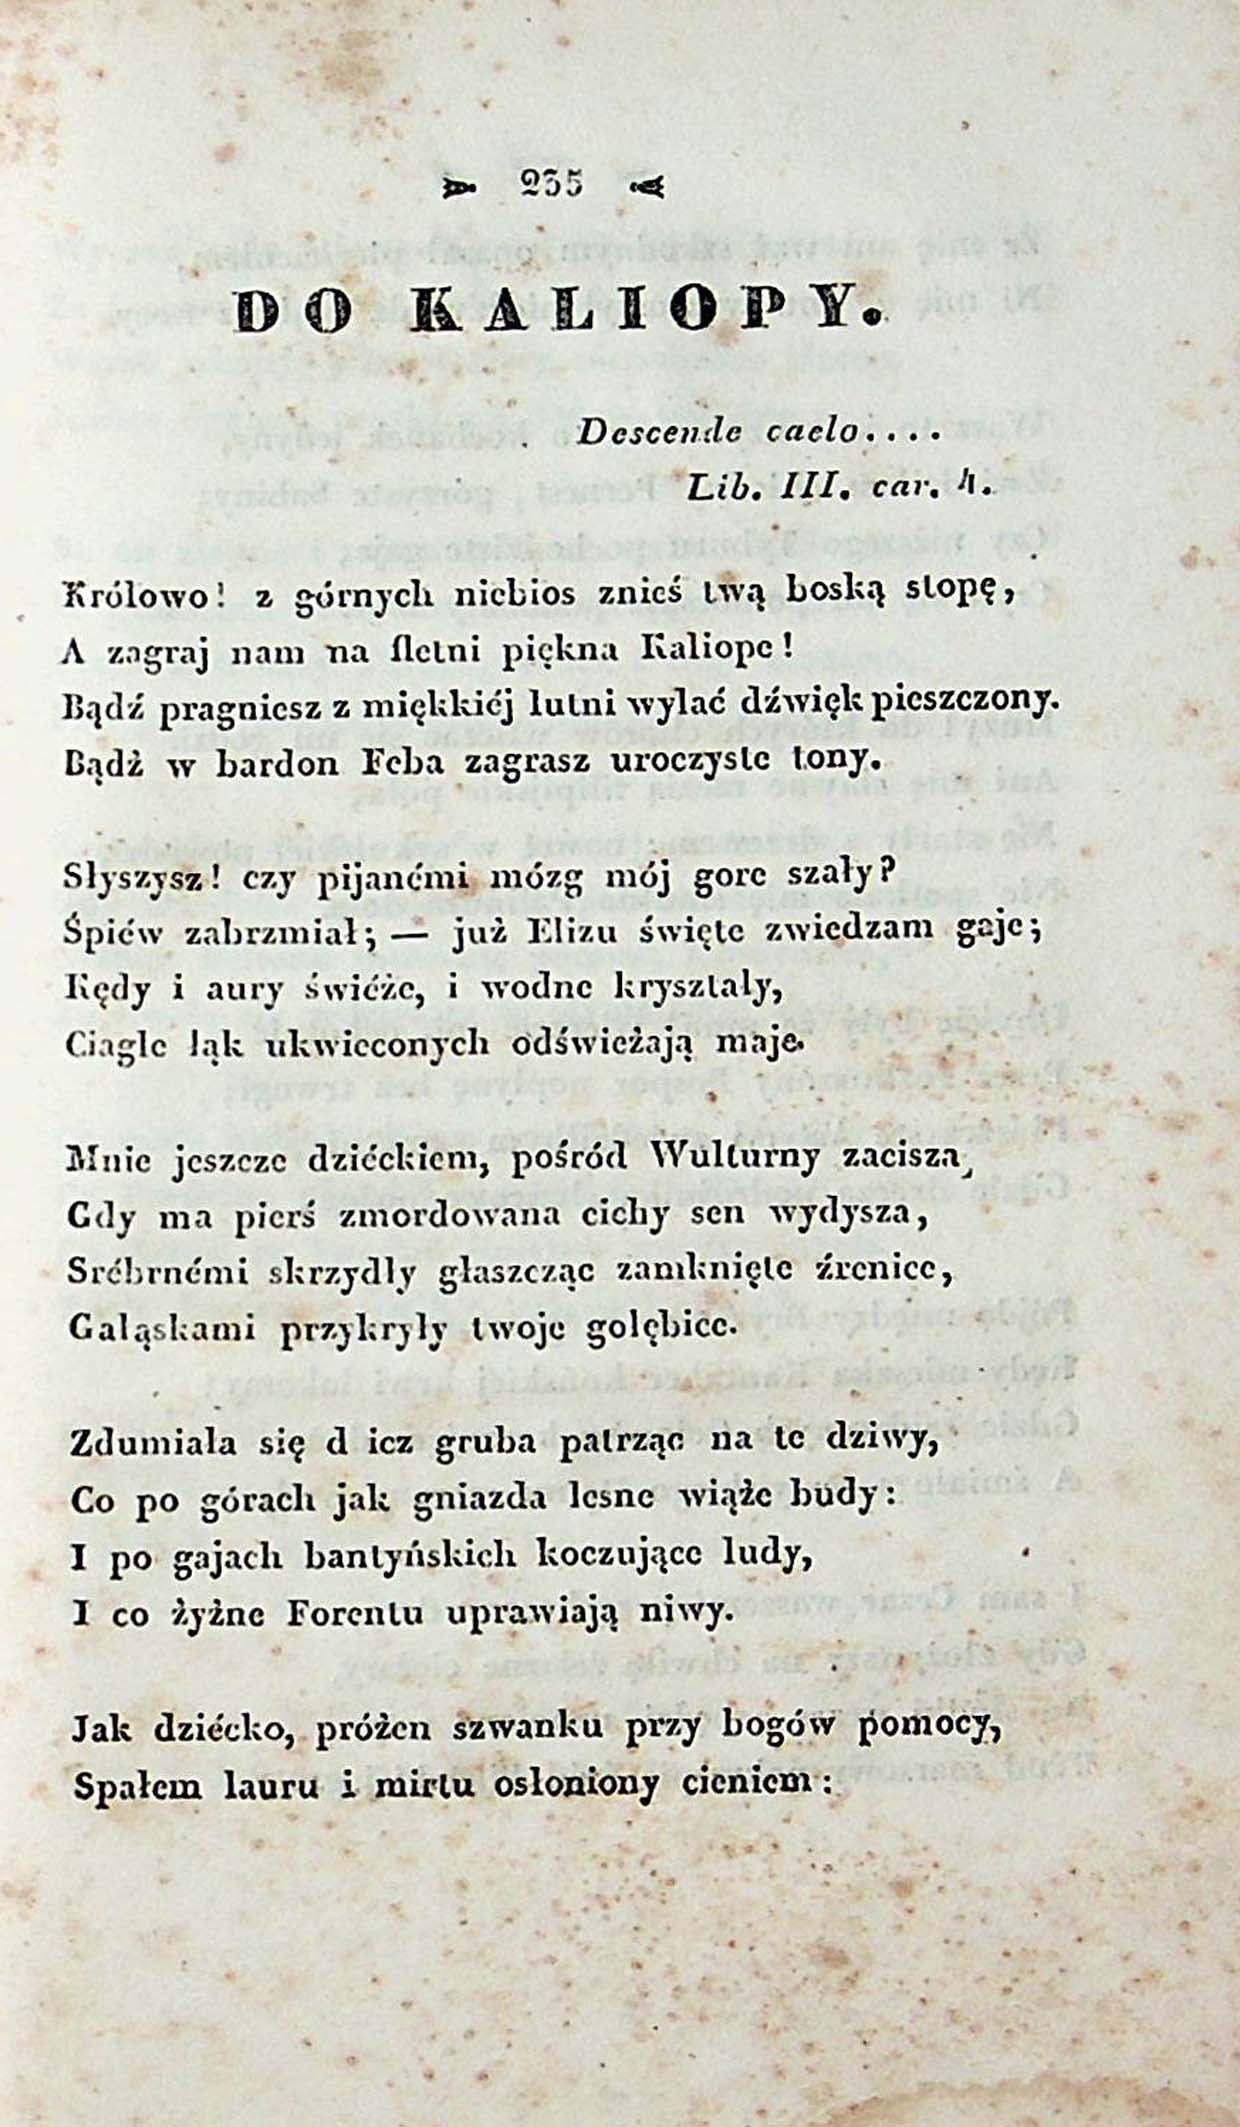 235
DO KALIOPY.
Descende caelo....
Lib. III. car. 4.
Królowo! z górnych niebios znieś twą boską stopę,
A zagraj nam na fletni piękna Kaliope!
Bądź pragniesz z miękkiéj lutni wylać dźwięk pieszczony.
Bądź w bardon Feba zagrasz uroczyste tony.
Słyszysz! czy pijanémi mózg mój gore szały?
Śpiéw zabrzmiał; — już Elizu święte zwiedzam gaje;
Kędy i aury świéże, i wodne kryształy,
Ciagle łąk ukwieconych odświeżają maje.
Mnie jeszcze dziéckiem, pośród Wulturny zacisza,
Gdy ma pierś zmordowana cichy sen wydysza,
Srébrnémi skrzydły głaszcząc zamknięte źrenice,
Gałąskami przykryły twoje gołębice.
Zdumiała się d icz gruba patrząc na te dziwy,
Co po górach jak gniazda leśne wiąże budy:
I po gajach bantyńskich koczujące ludy,
I co żyżne Forentu uprawiają niwy.
Jak dziécko, prózen szwanku przy bogów pomocy,
Spałem lauru i mirtu osłoniony cieniem: